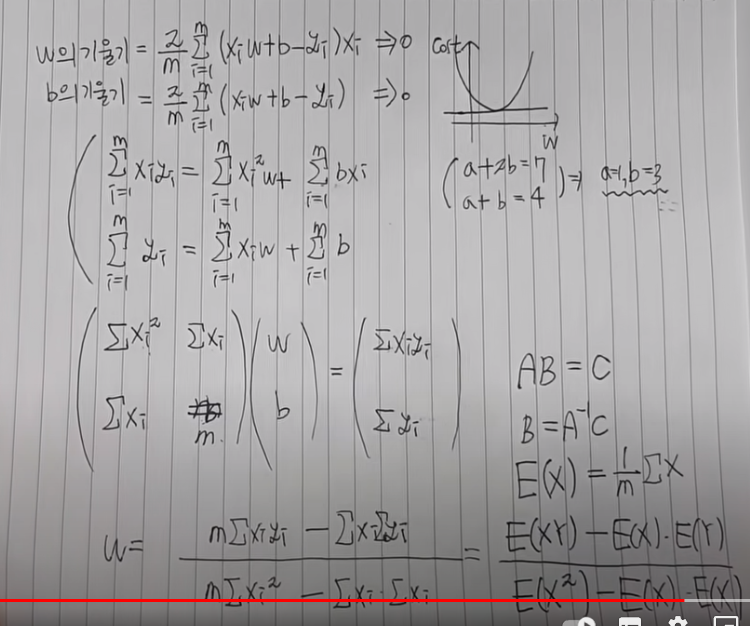 w의 기울기 = 2/m Σ_{i=1}^{m} (xᵢw+b−yᵢ)xᵢ ⇒0
b의 기울기 = 2/m Σ_{i=1}^{m} (xᵢw+b−yᵢ) ⇒0
cost
w
Σ_{i=1}^{m} xᵢyᵢ = Σ_{i=1}^{m} xᵢ²w + Σ_{i=1}^{m} bxᵢ
Σ_{i=1}^{m} yᵢ = Σ_{i=1}^{m} xᵢw + Σ_{i=1}^{m} b
a+2b=7
a+b=4
⇒ a=1, b=3
( Σxᵢ² Σxᵢ ) ( w ) = ( Σxᵢyᵢ )
( Σxᵢ m ) ( b ) ( Σyᵢ )
AB = C
B = A⁻¹C
E(X) = 1/m ΣX
w= (mΣxᵢyᵢ − ΣxᵢΣyᵢ) / (mΣxᵢ² − Σxᵢ·Σxᵢ) = (E(XY)−E(X)·E(Y)) / (E(X²)−E(X)·E(X))